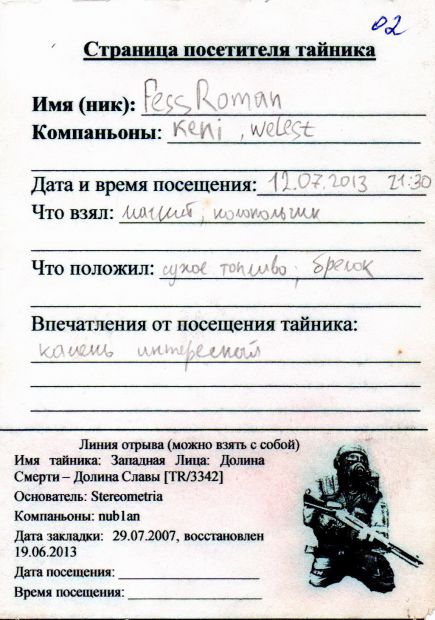 02
Страница посетителя тайника
Имя (ник): FessRoman
Компаньоны: Keni, welest
Дата и время посещения: 12.07.2013 21:30
Что взял: магнит, колокольчик
Что положил: сухое топливо, брелок
Впечатления от посещения тайника:
камень интересный
Линия отрыва (можно взять с собой)
Имя тайника: Западная Лица: Долина
Смерти – Долина Славы [TR/3342]
Основатель: Stereometria
Компаньоны: nub1an
Дата закладки: 29.07.2007, восстановлен
19.06.2013
Дата посещения:
Время посещения: